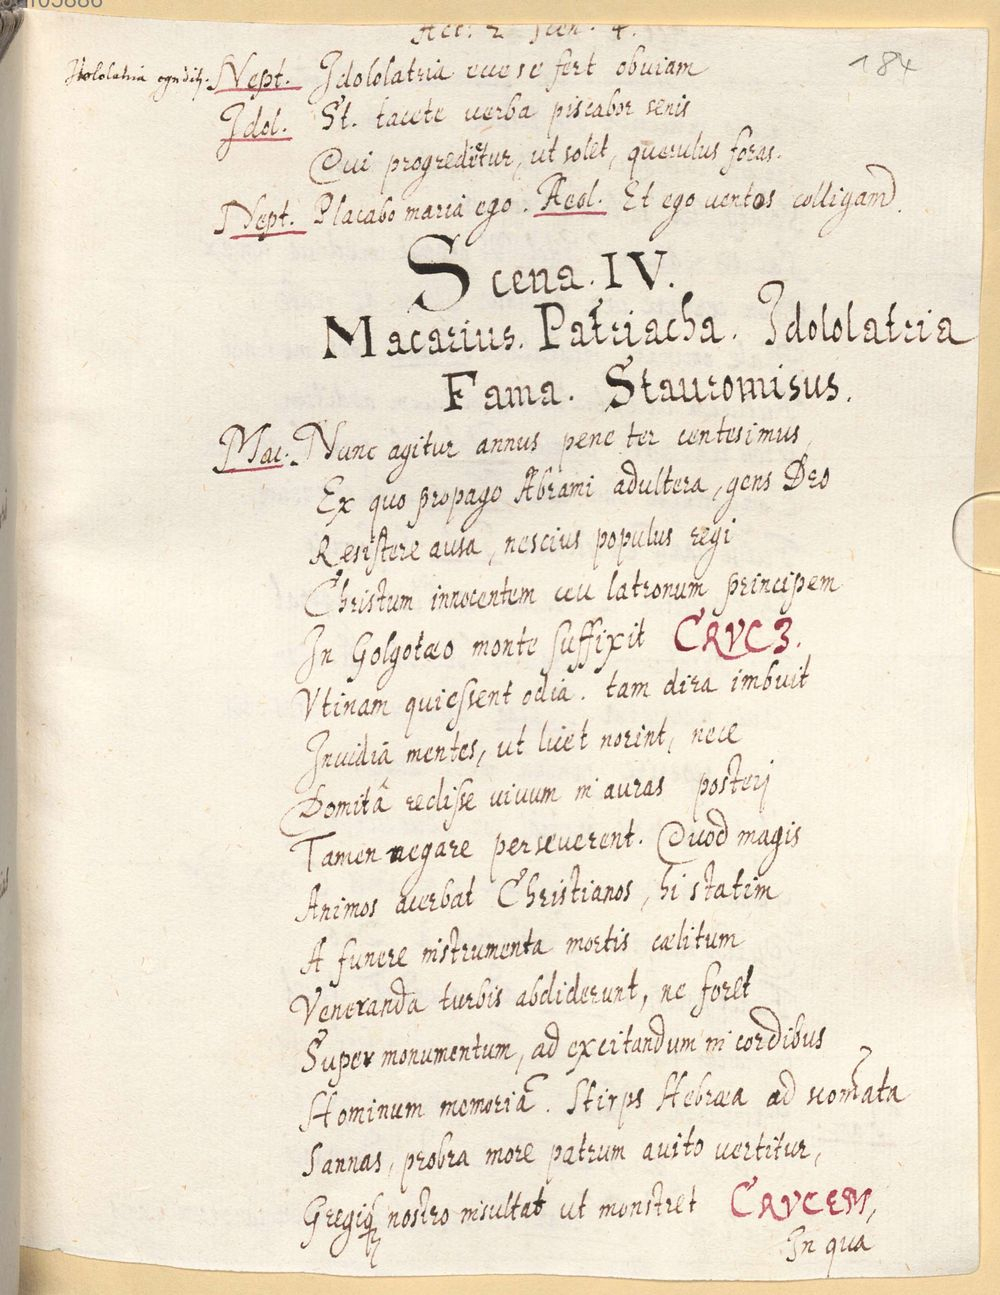 Act. 2 Scen. 4.
184
Idololatria egreditur. Nept. Idololatria ecce se fert obuiam
Idol. St. tacete verba piscabor senis
Qui progreditur, ut solet, querulus foras.
Nept. Placabo maria ego. Aeol. Et ego ventos colligam.
Scena. IV.
Macarius. Patriacha. Idololatria
Fama. Stauromisus.
Mac. Nunc agitur annus pene ter centesimus,
Ex quo propago Abrami adultera, gens Deo
Resistere ausa, nescius populus regi
Christum innocentem ceu latronum principem
In Golgotæo monte suffixit CRVCJ.
Vtinam quiessent odia. tam dira imbuit
Inuidiâ mentes, ut licet norint, nece
Domitâ rediisse uiuum in auras posterj
Tamen negare perseuerent. Quod magis
Animos acerbat Christianos, hi statim
A funere instrumenta mortis cælitum
Veneranda turbis abdiderunt, ne foret
Super monumentum, ad excitandum in cordibus
Hominum memoriã. Stirps Hebræa ad scom̃ata
Sannas, probra more patrum auito vertitur,
Gregiq; nostro insultat ut monstret CRVCEM,
In qua